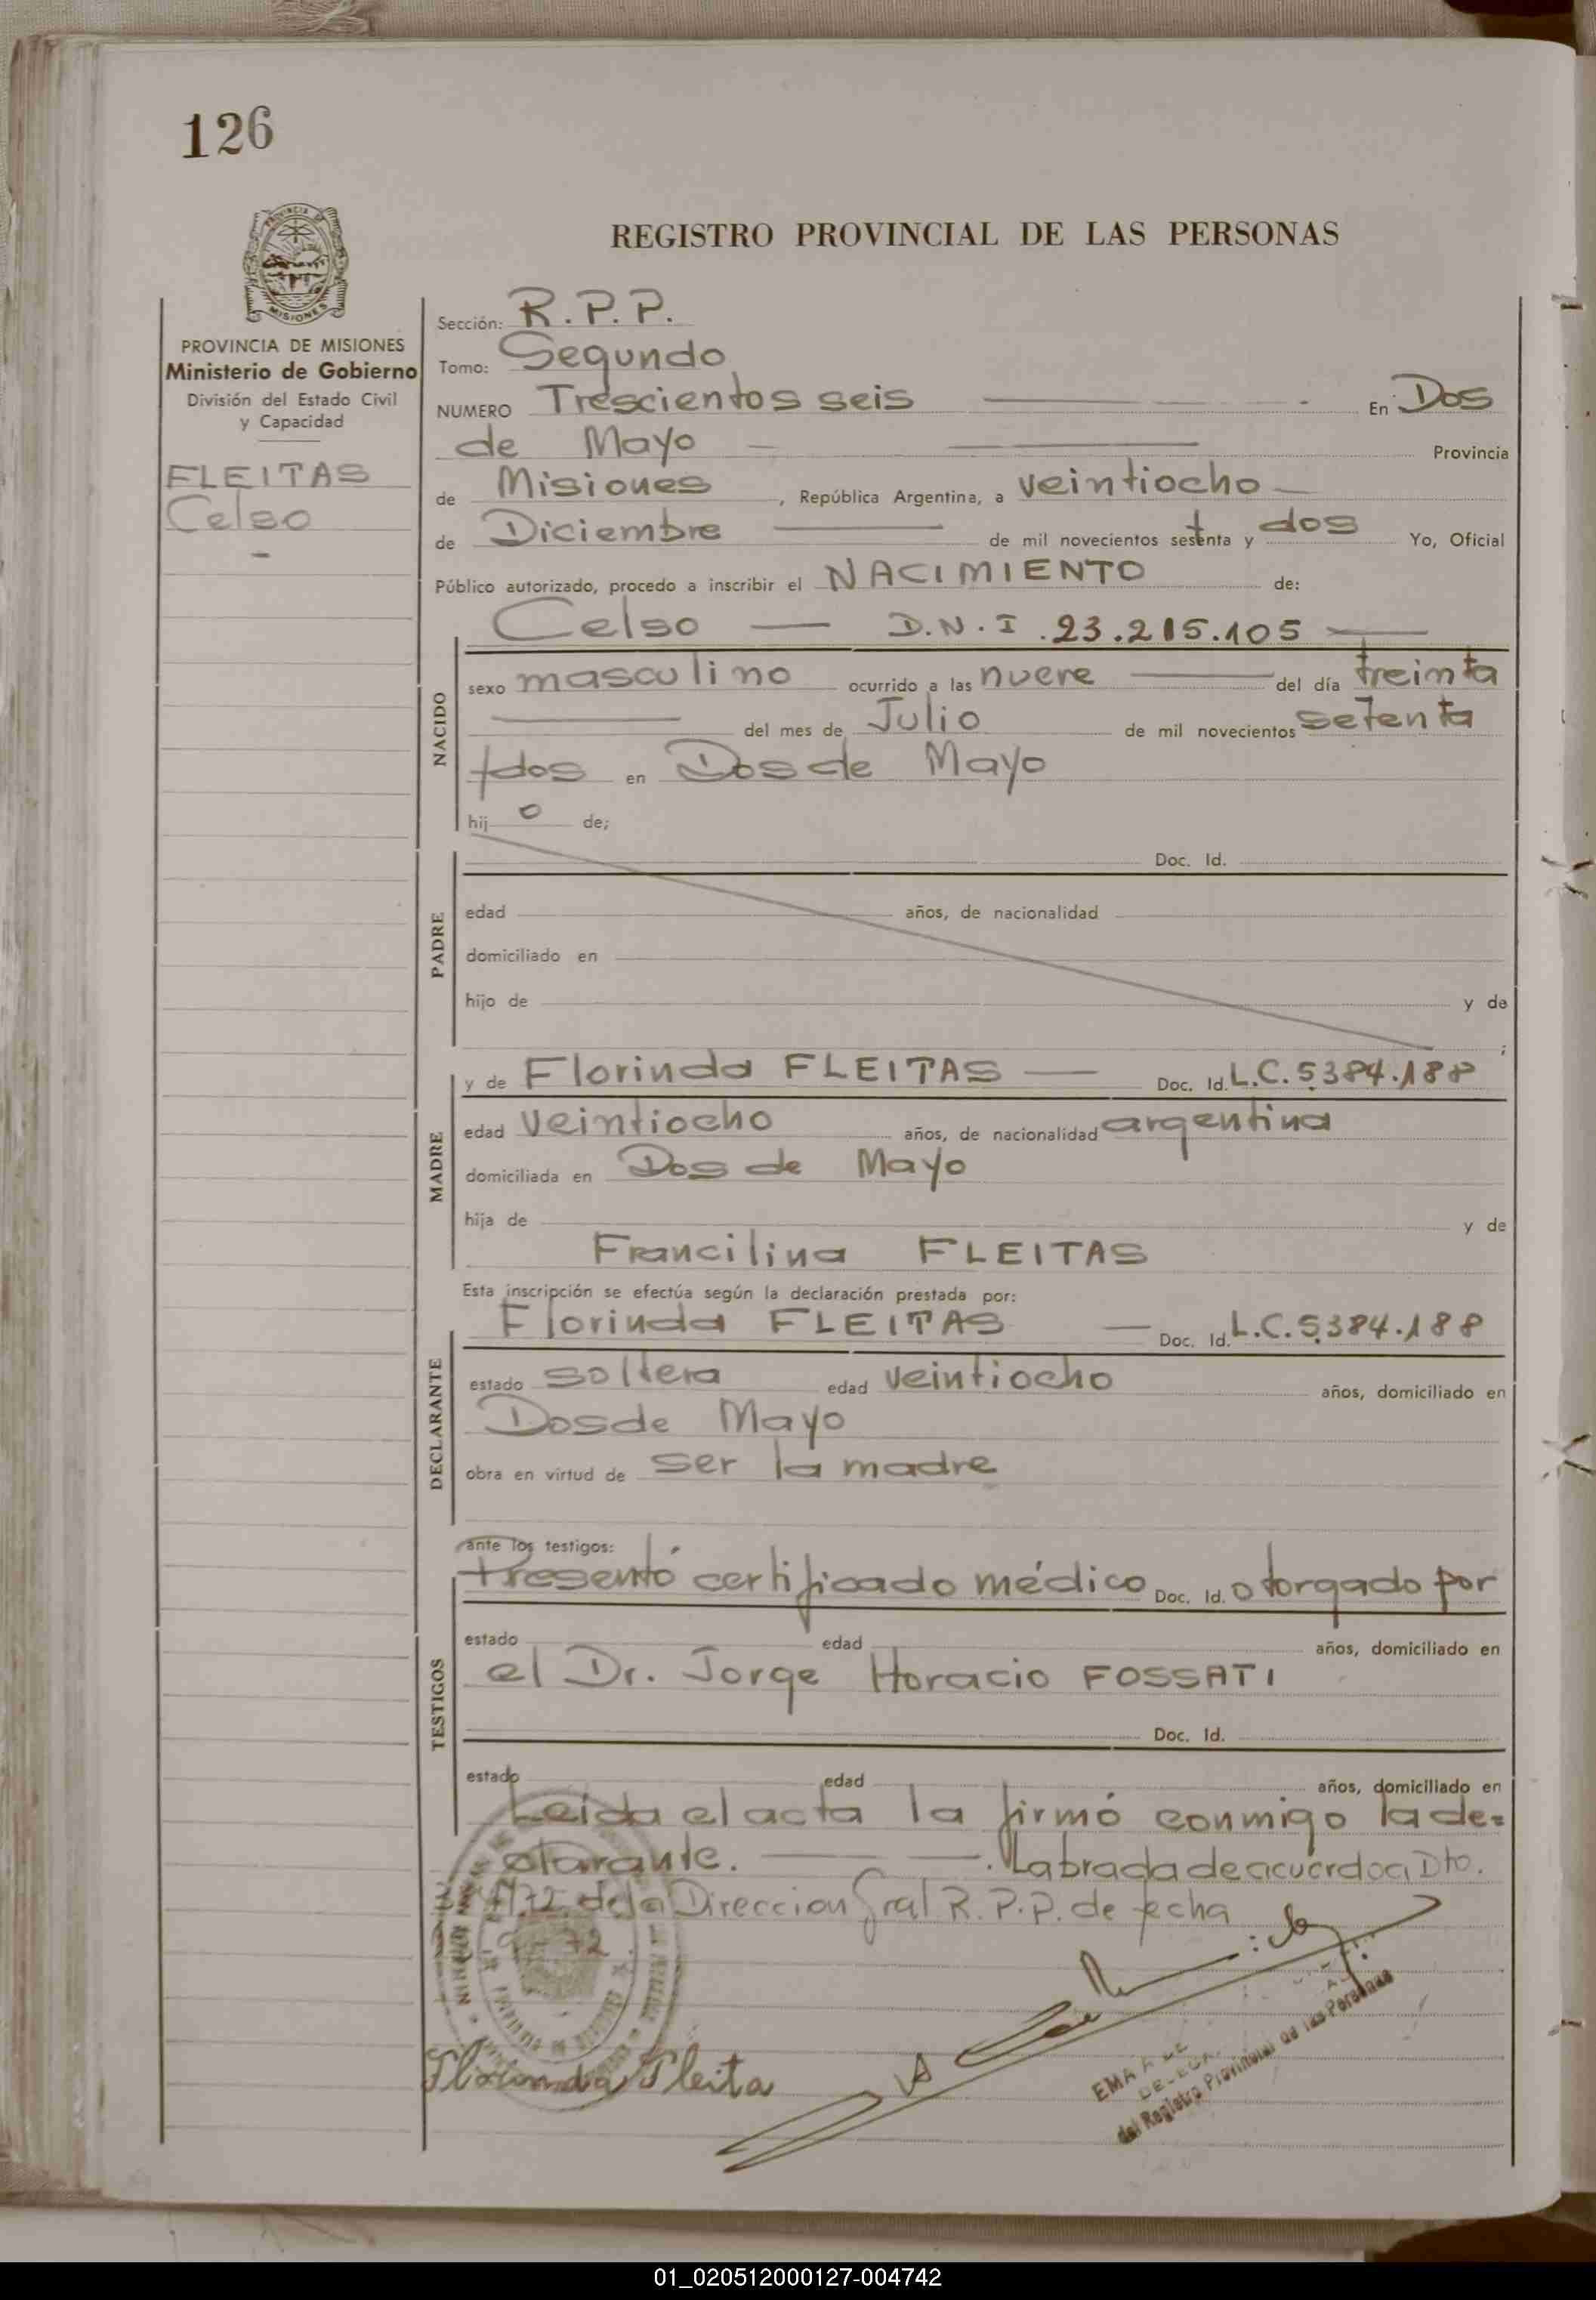 126
REGISTRO PROVINCIAL DE LAS PERSONAS
PROVINCIA DE MISIONES
Ministerio de Gobierno
División del Estado Civil
y Capacidad
FLEITAS
Celso
Sección: R.P.P.
Tomo: Segundo
NUMERO Trescientos seis En Dos
de Mayo Provincia
de Misiones, República Argentina, a veintiocho
de Diciembre de mil novecientos setenta y dos Yo, Oficial
Público autorizado, procedo a inscribir el NACIMIENTO de:
Celso — D.N.I. 23.215.105
NACIDO
sexo masculino ocurrido a las nueve del día treinta
del mes de Julio de mil novecientos setenta
y dos en Dos de Mayo
hij o de;
PADRE
Doc. Id.
edad años, de nacionalidad
domiciliado en
hijo de y de
;
MADRE
y de Florinda FLEITAS — Doc. Id. L.C. 5.384.188
edad veintiocho años, de nacionalidad argentina
domiciliada en Dos de Mayo
hija de y de
Francilina FLEITAS
Esta inscripción se efectúa según la declaración prestada por:
DECLARANTE
Florinda FLEITAS — Doc. Id. L.C. 5.384.188
estado soltera edad veintiocho años, domiciliado en
Dos de Mayo
obra en virtud de ser la madre
ante los testigos:
TESTIGOS
Presentó certificado médico Doc. Id. otorgado por
estado edad años, domiciliado en
el Dr. Jorge Horacio FOSSATI
Doc. Id.
estado edad años, domiciliado en
Leida el acta la firmó conmigo la de=
clarante. — —. Labrada de acuerdo a Dto.
de la Direccion Gral R.P.P. de fecha
72.
Florinda Fleita
EMA
del Registro Provincial de las Personas
01_020512000127-004742